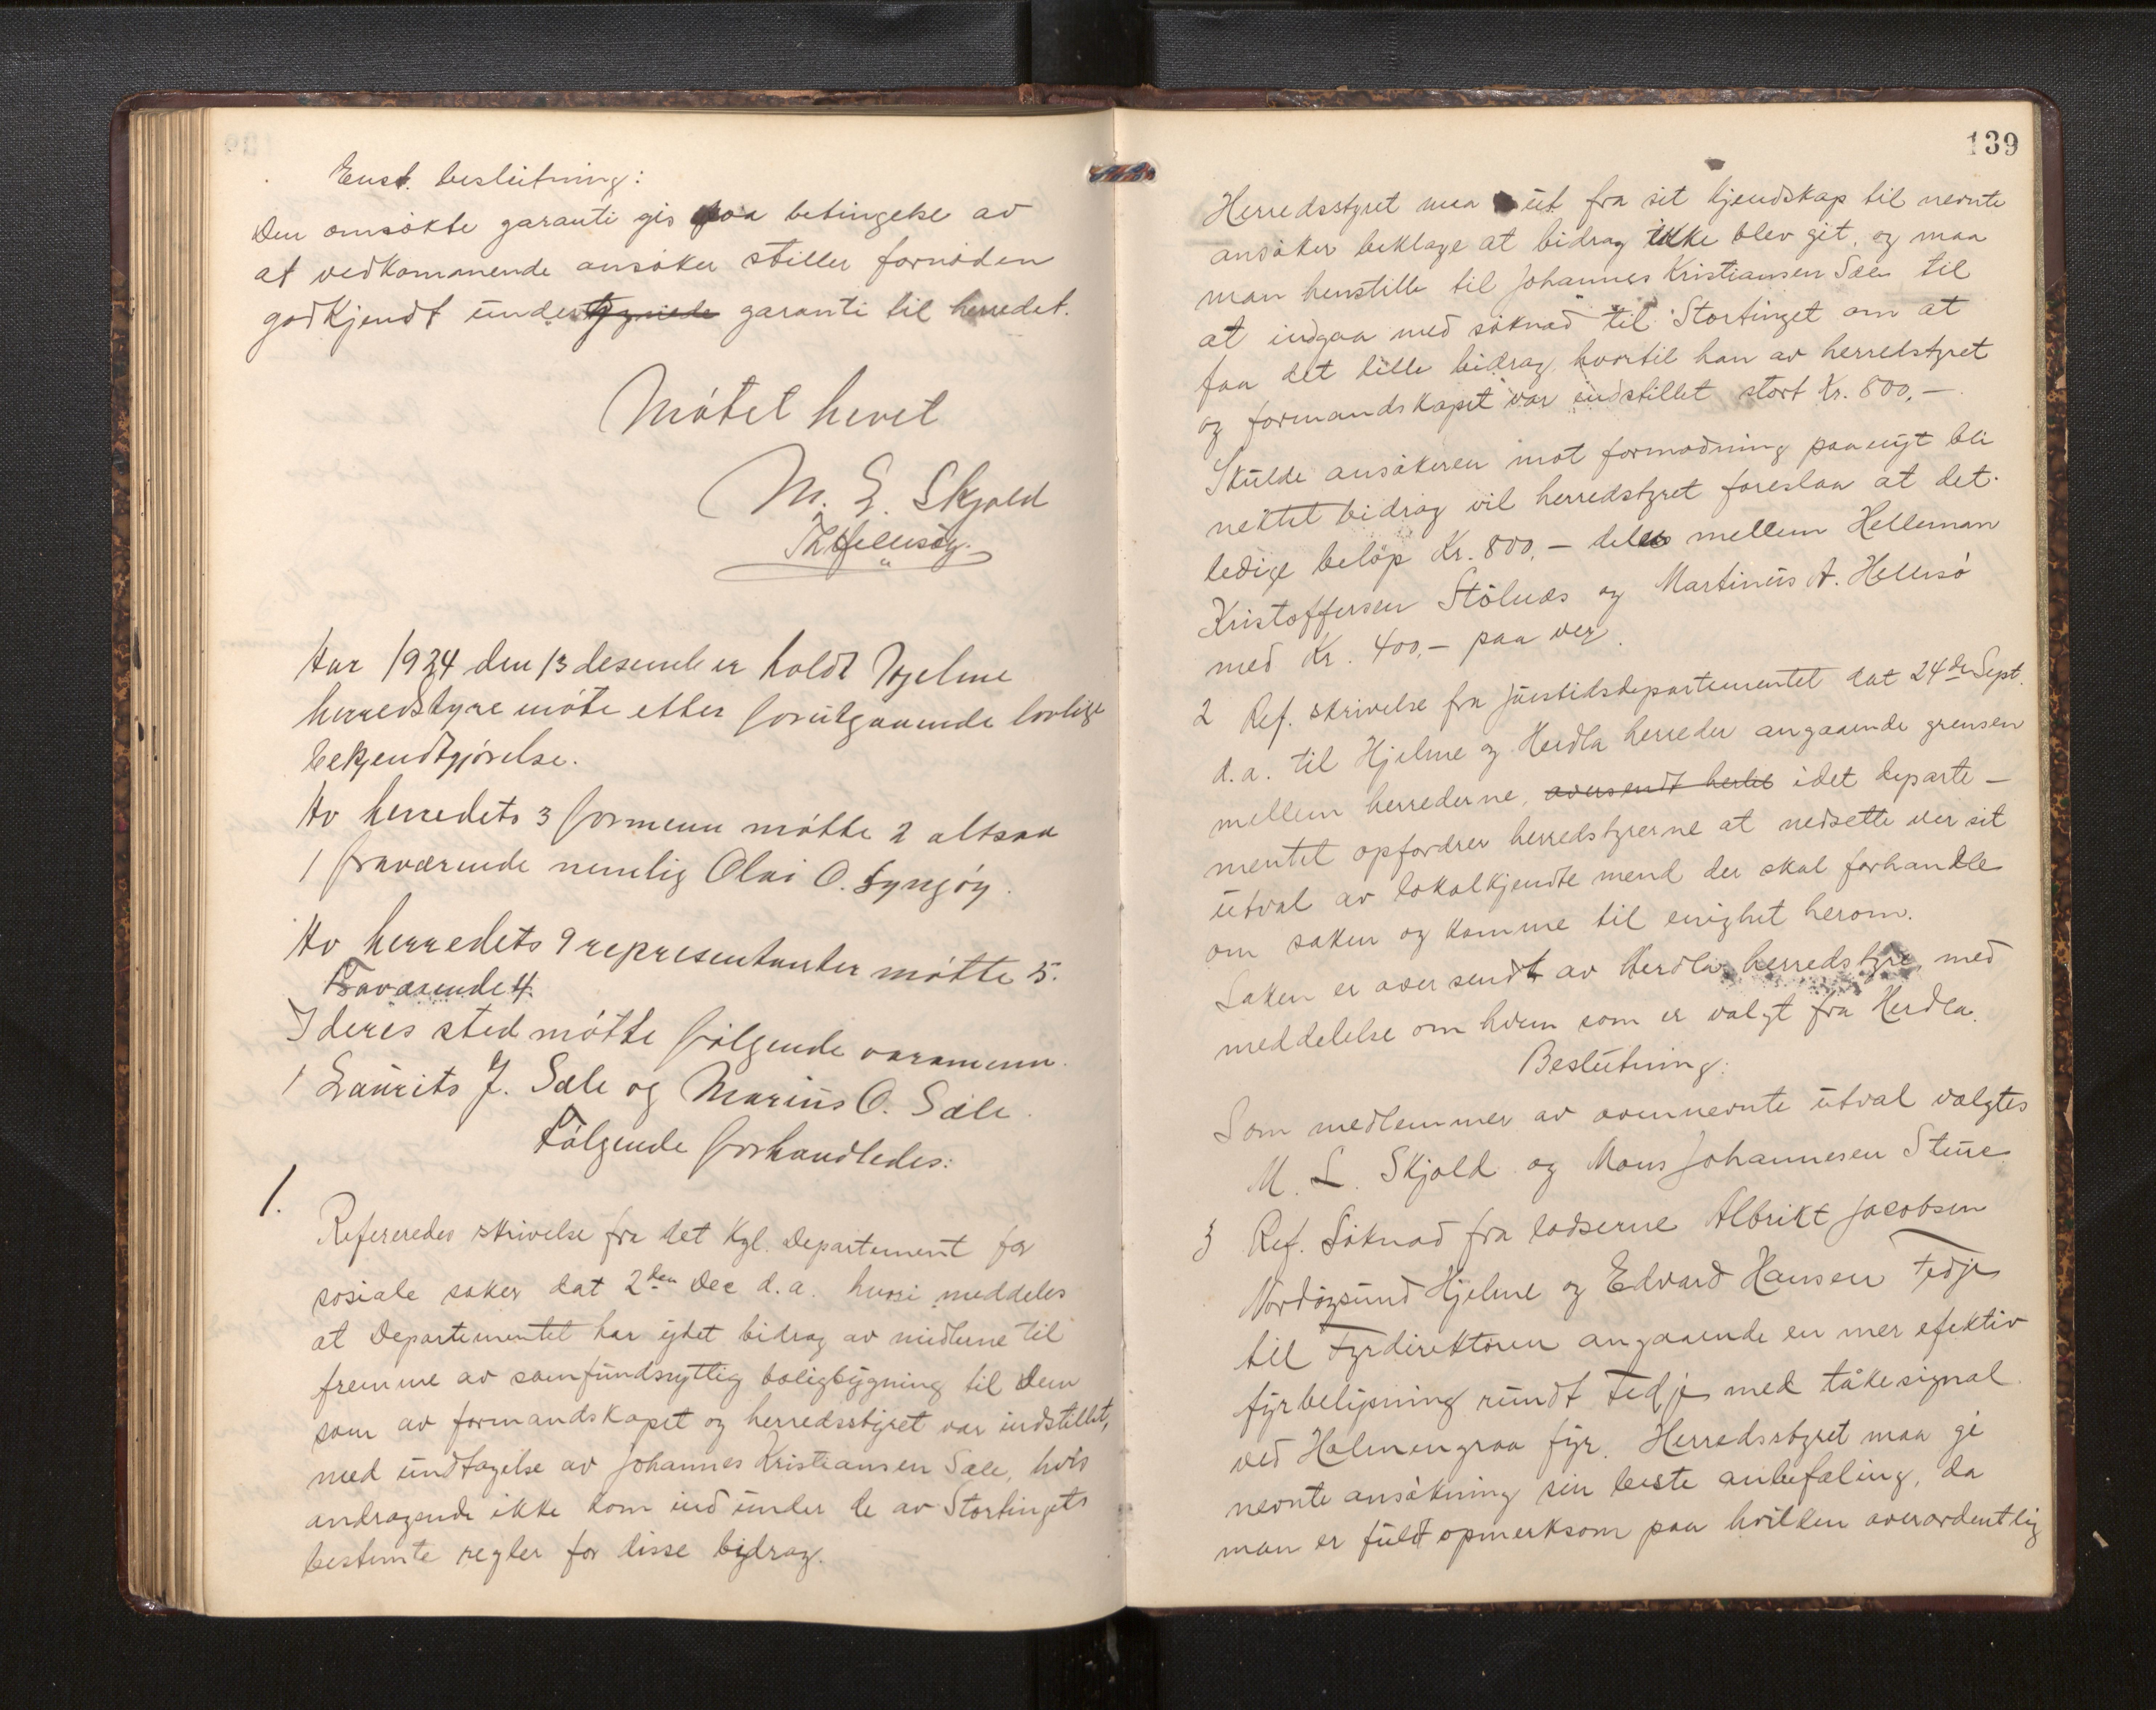 Enst. beslutning:
Den omsøkte garanti gis paa betingelse av
at vedkommende ansøker stiller fornøden
godkjendt under garanti til herredet.
Møtet hevet
M. L. Skjold
Aar 1924 den 13 desember holdt Hjelme
herredstyre møte etter forutgaaende lovlige
bekjendtgjørelse.
Av herredets 3 formenn møtte 2 altsaa
1 fraværende nemlig Olai O. Syngøy.
Av herredets 9 representanter møtte 5.
Fraværende 4.
I deres sted møtte følgende varamenn.
1 Laurits J. Sæle og Marius O. Sæle.
Følgende forhandledes:
1.
Refereredes skrivelse fra det Kgl. Departement for
sosiale saker dat 2den Dec d.a. hvori meddeles
at Departementet har ydet bidrag av midlerne til
fremme av samfundsnyttig boligbygning til dem
som av formandskapet og herredsstyret var indstillet,
med undtagelse av Johannes Kristiansen Sæle, hvis
andragende ikke kom ind under de av Stortingets
bestemte regler for disse bidrag.
139
Herredsstyret maa ut fra sit kjendskap til nevnte
ansøker beklage at bidrag ikke blev git, og maa
man henstille til Johannes Kristiansen Sæle til
at indgaa med søknad til Stortinget om at
faa det lille bidrag, hvortil han av herredstyret
og formandskapet var indstillet stort Kr. 800,-
Skulde ansøkeren mot formodning paa nyt bli
nektet bidrag vil herredstyret foreslaa at det
ledige beløp Kr. 800,- deles mellem Helleman
Kristoffersen Stølnæs og Martinus A. Hellesø
med Kr. 400,- paa ver.
2 Ref. skrivelse fra Justidsdepartementet dat 24de Sept.
d.a. til Hjelme og Herdla herreder angaaende grensen
mellem herrederne, oversendt hertil idet departe-
mentet opfordrer herredstyrerne at nedsette ver sit
utval av lokalkjendte mend der skal forhandle
om saken og komme til enighet herom.
Saken er oversendt av Herdla herredstyre, med
meddelelse om hvem som er valgt fra Herdla.
Beslutning:
Som medlemmer av ovennevnte utval valgtes
M. L. Skjold og Mons Johannesen Sture
3 Ref. Søknad fra lodserne Albrikt Jacobsen
Nordøysund Hjelme og Edvard Hansen Fedje
til Fyrdirektøren angaaende en mer efektiv
fyrbelysning rundt Fedje med tåkesignal
ved Holmengraa fyr. Herredsstyret maa gi
nevnte ansøkning sin beste anbefaling, da
man er fuldt opmerksom paa hvilken overordentlig